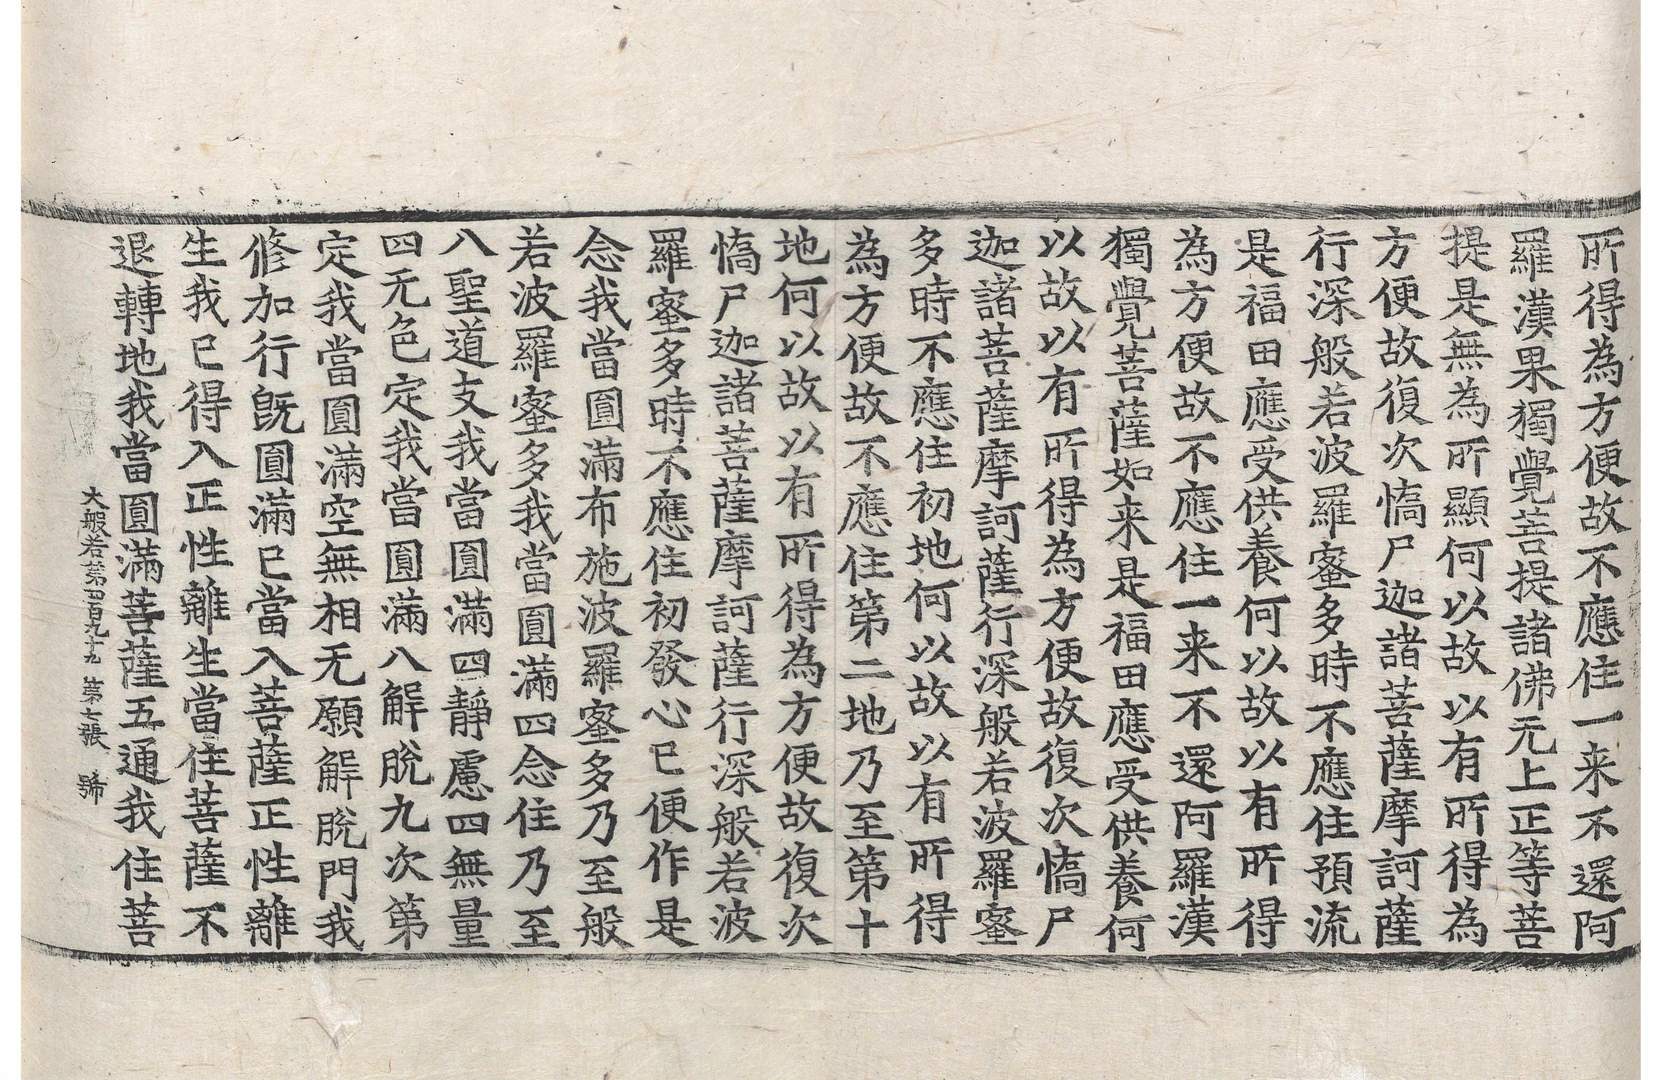 所得為方便故不應住一来不還阿
羅漢果獨覺菩提諸佛无上正等菩
提是無為所顯何以故以有所得為
方便故復次憍尸迦諸菩薩摩訶薩
行深般若波羅蜜多時不應住預流
是福田應受供養何以故以有所得
為方便故不應住一来不還阿羅漢
獨覺菩薩如来是福田應受供養何
以故以有所得為方便故復次憍尸
迦諸菩薩摩訶薩行深般若波羅蜜
多時不應住初地何以故以有所得
為方便故不應住第二地乃至第十
地何以故以有所得為方便故復次
憍尸迦諸菩薩摩訶薩行深般若波
羅蜜多時不應住初發心已便作是
念我當圓滿布施波羅蜜多乃至般
若波羅蜜多我當圓滿四念住乃至
八聖道支我當圓滿四靜慮四無量
四无色定我當圓滿八解脫九次第
定我當圓滿空無相无願解脫門我
修加行旣圓滿已當入菩薩正性離
生我已得入正性離生當住菩薩不
退轉地我當圓滿菩薩五通我住菩
大般若第四百九十九 第七張 號